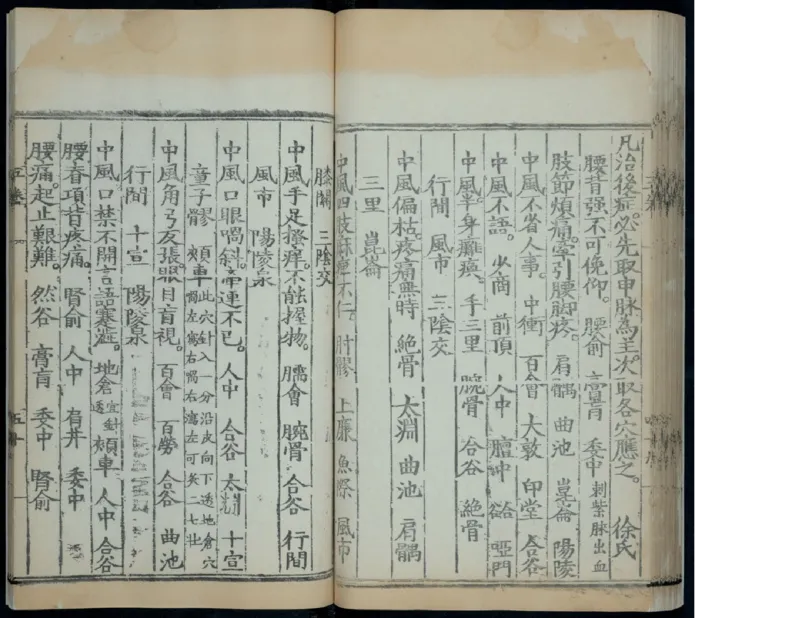 凡治後症必先取申脉為主次取各穴應之。 徐氏
腰背强不可俛仰。 腰俞 膏肓 委中 刺紫脉出血
肢節煩痛。牽引腰脚疼。 肩髃 曲池 崑崙 陽陵
中風不省人事。 中衝 百會 大敦 印堂 合谷
中風不語。 少商 前頂 人中 膻中 合谷 啞門
中風半身癱瘓。 手三里 腕骨 合谷 絶骨
行間 風市 三陰交
中風偏枯。疼痛無時 絶骨 太淵 曲池 肩髃
三里 崑崙
中風四肢麻痺不仁。 肘髎 上廉 魚際 風市
膝關 三陰交
中風手足搔痒。不能握物。 臑會 腕骨 合谷 行間
風市 陽陵泉
中風口眼喎斜。牽連不已。 人中 合谷 太淵 十宣
童子髎 頰車 此穴針入一分沿皮向下透地倉穴
喎左瀉右喎右瀉左可灸二七壮
中風角弓反張眼目盲視。 百會 百勞 合谷 曲池
行間 十宣 陽陵泉
中風口禁不開言語蹇澁。 地倉 宜針透 頰車 人中 合谷
腰脊項背疼痛。 腎俞 人中 肩井 委中
腰痛。起止艱難。 然谷 膏肓 委中 腎俞
五卷
五十